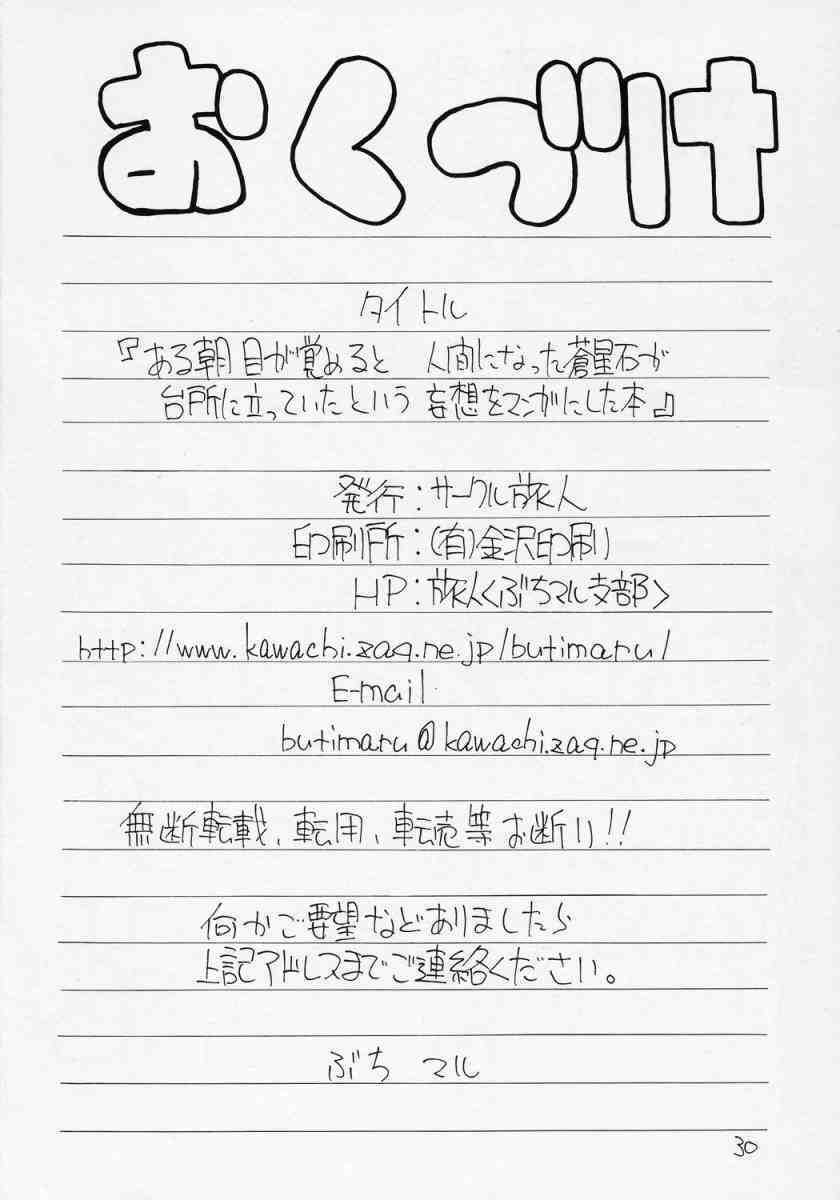 おくづけ
タイトル
『ある朝目が覚めると 人間になった蒼星石が
台所に立っていたという 妄想をマンガにした本』
発行：サークル旅人
印刷所：(有)金沢印刷
HP：旅人くぶちマル支部>
http://www.kawachi.zaq.ne.jp/butimaru/
E-mail
butimaru@kawachi.zaq.ne.jp
無断転載、転用、転売等お断り!!
何かご要望などありましたら
上記アドレスまでご連絡ください。
ぶち マル
30